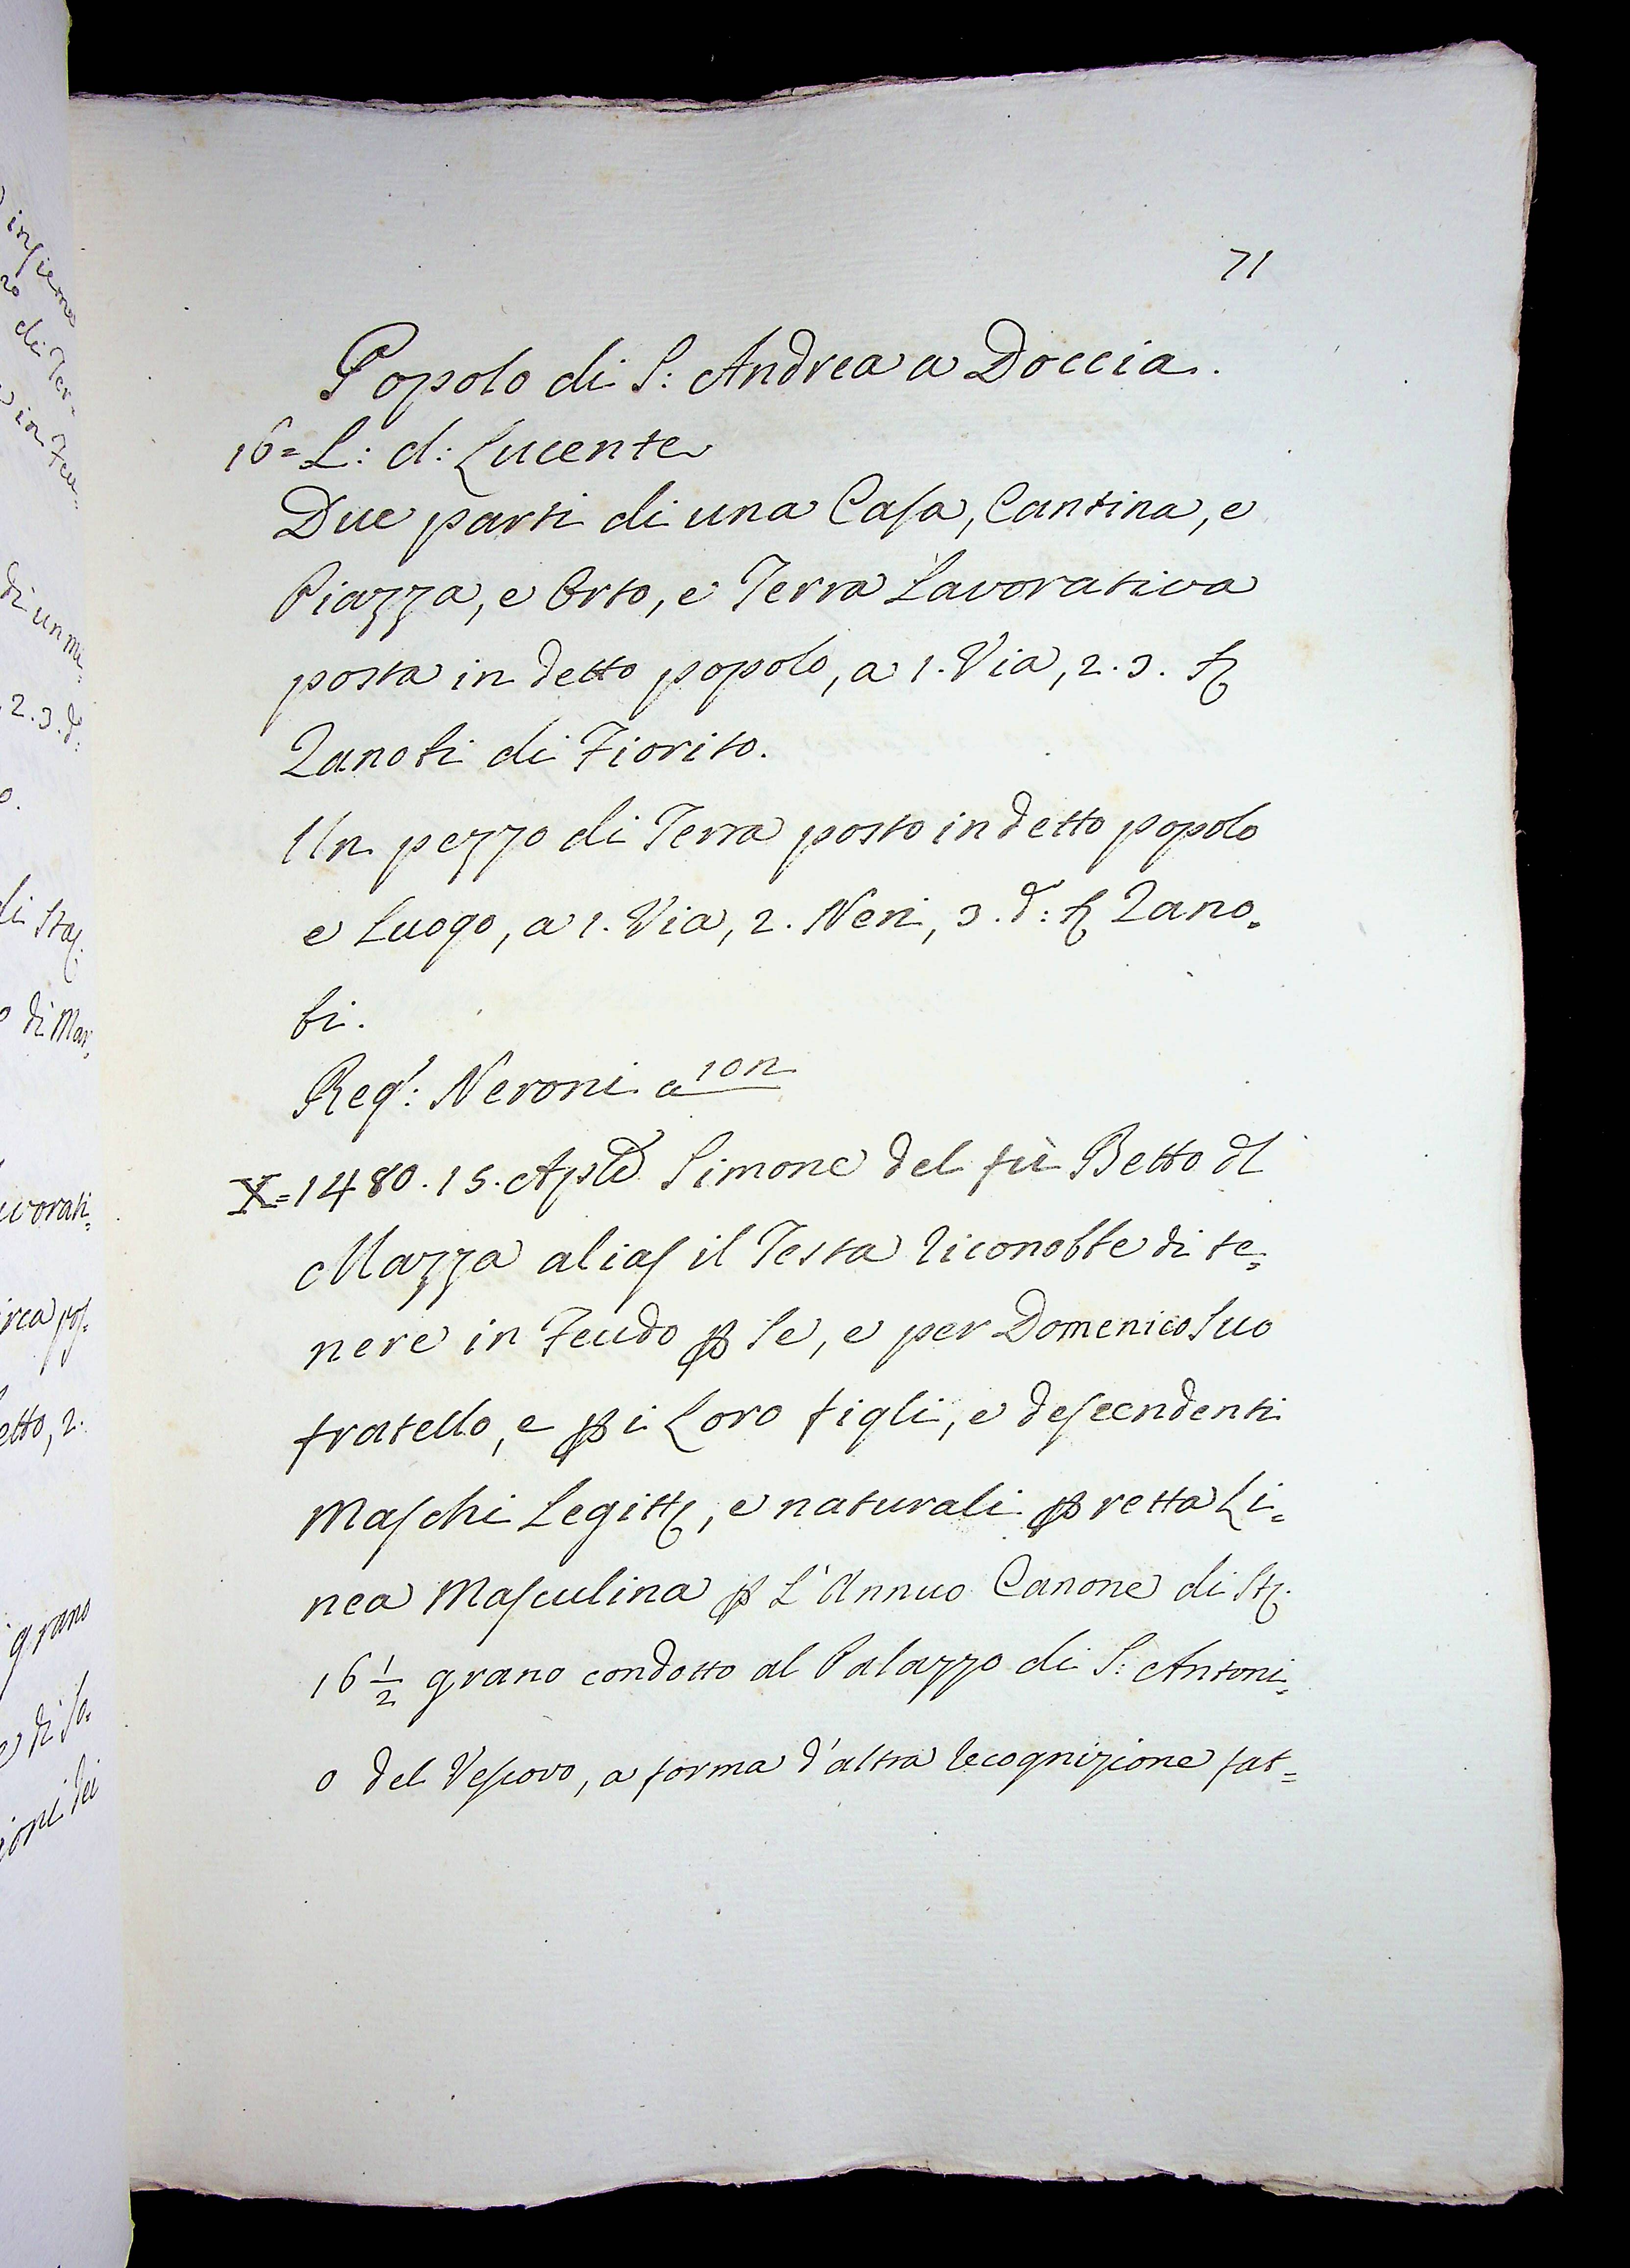 71
Popolo di S: Andrea a Doccia.
16= L: d: Lucente
Due parti di una Casa, Cantina, e
Piazza, e Orto, e Terra Lavorativa
posta in detto popolo, a 1. Via, 2. 3.
Zanobi di Fiorito.
Un pezzo di Terra posto in detto popolo
e Luogo, a 1. Via, 2. Neri, 3. d: Zano=
bi.
Reg: Neroni a 101
X=1480. 15. Aple Simone del fù Betto dl
Mazza alias il Testa riconobbe di te=
nere in Feudo p se, e per Domenico suo
fratello, e p i Loro figli, e descendenti
Maschi Legitti, e naturali p retta Li=
nea Masculina p L'Annuo Canone di St:
16 1/2 grano condotto al Palazzo di S: Antoni=
o del Vescovo, a forma d'altra recognizione fat=
insieme
di Ter=
in Feu=
di un me=
2. 3. d:
di Mar=
avorati=
irca
etto, 2.
grano
ioni dei